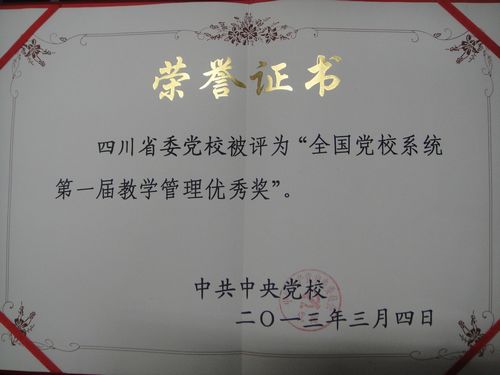 荣誉证书
四川省委党校被评为“全国党校系统
第一届教学管理优秀奖”。
中共中央党校
二〇一三年三月四日